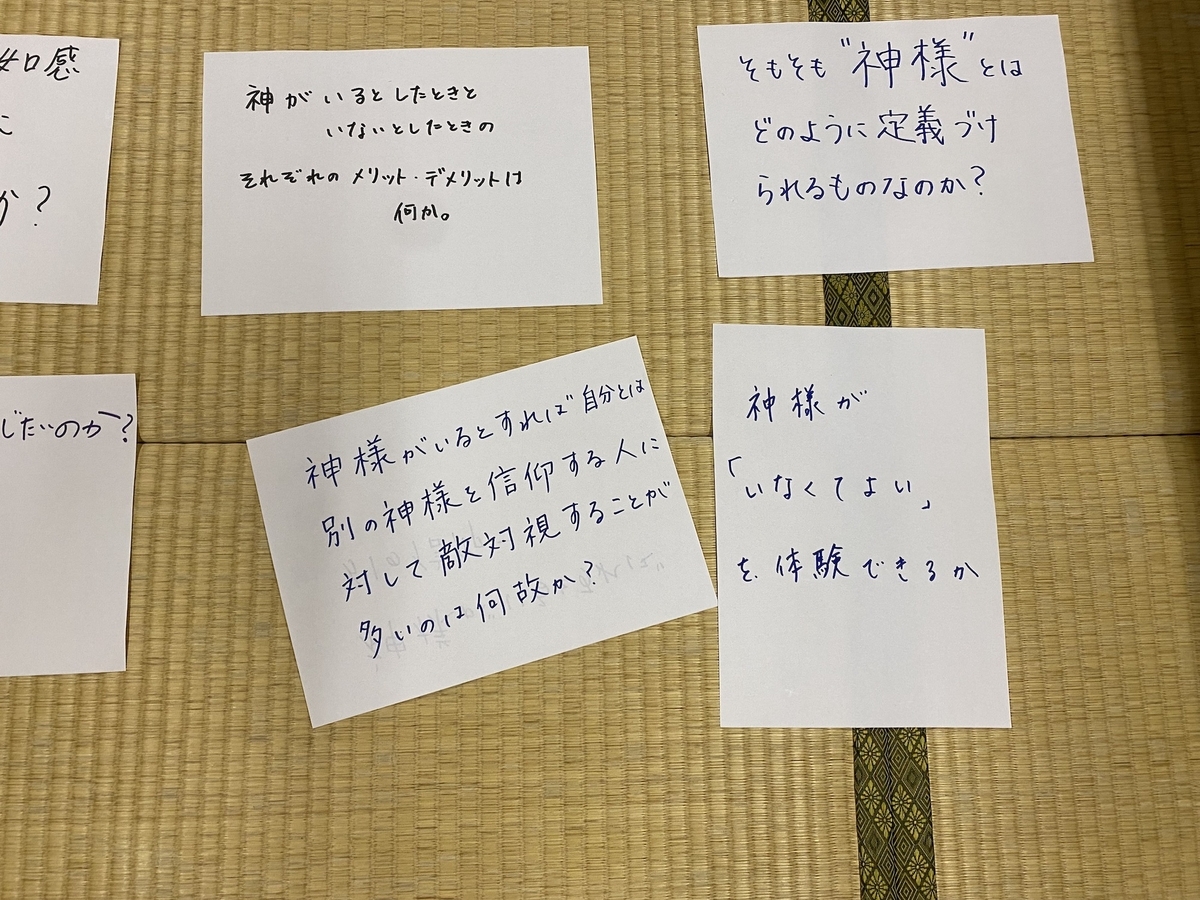 知感
に
か?
神がいるとしたときと
いないとしたときの
それぞれのメリット・デメリットは
何か。
そもそも"神様"とは
どのように定義づけ
られるものなのか?
じたいのか?
神様がいるとすれば自分とは
別の神様を信仰する人に
対して敵対視することが
多いのは何故か?
神様が
「いなくてよい」
を体験できるか